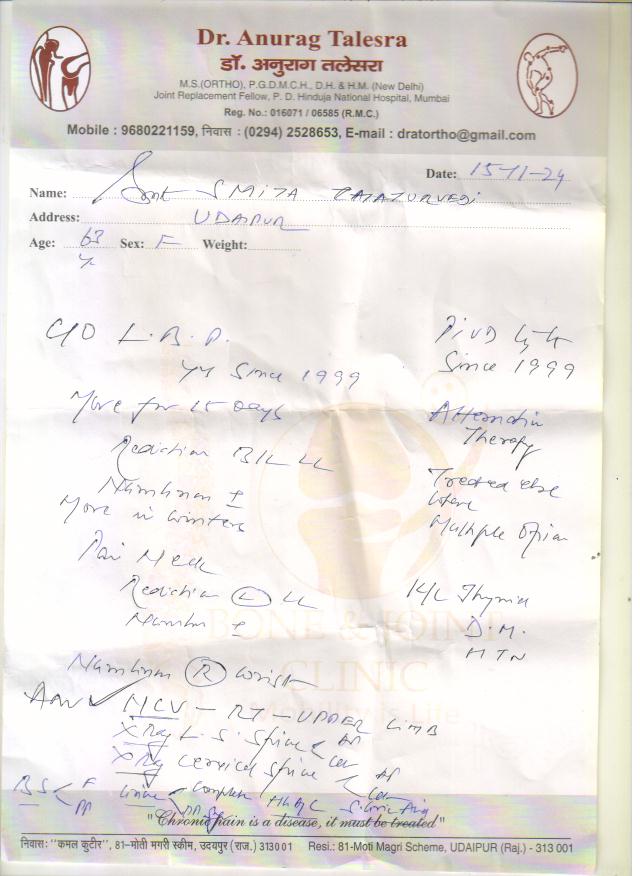 Dr. Anurag Talesra
डॉ. अनुराग तलेसरा
M.S.(ORTHO), P.G.D.M.C.H., D.H. & H.M. (New Delhi)
Joint Replacement Fellow, P. D. Hinduja National Hospital, Mumbai
Reg. No.: 016071 / 06585 (R.M.C.)
Mobile : 9680221159, निवास : (0294) 2528653, E-mail : dratortho@gmail.com
Date: 15-11-24
Name: Smt SMITA
Address: UDAIPUR
Age: 63 Sex: F Weight:
y
C/O L.B.P.
Since 1999
More for 15 Days
Radiation B/L LL
Numbness ±
More in winters
Pain Neck
Radiation L LL
Numbn ±
Numbness R wrist
PIVD
Since 1999
Alternative
Therapy
Treated else
where
Multiple Opinion
K/C Thyroid
D.M.
HTN
BONE & JOINT
CLINIC
Mobility is Life
Adv NCV - RT - UPPER LIMB
X Ray L.S. Spine < AP Lat
X Ray Cervical Spine < AP Lat
BS < F PP Urine Complete HbA1C S. Uric Acid
"Chronic pain is a disease, it must be treated"
निवास: "कमल कुटीर", 81-मोती मगरी स्कीम, उदयपुर (राज.) 313001 Resi.: 81-Moti Magri Scheme, UDAIPUR (Raj.) - 313 001